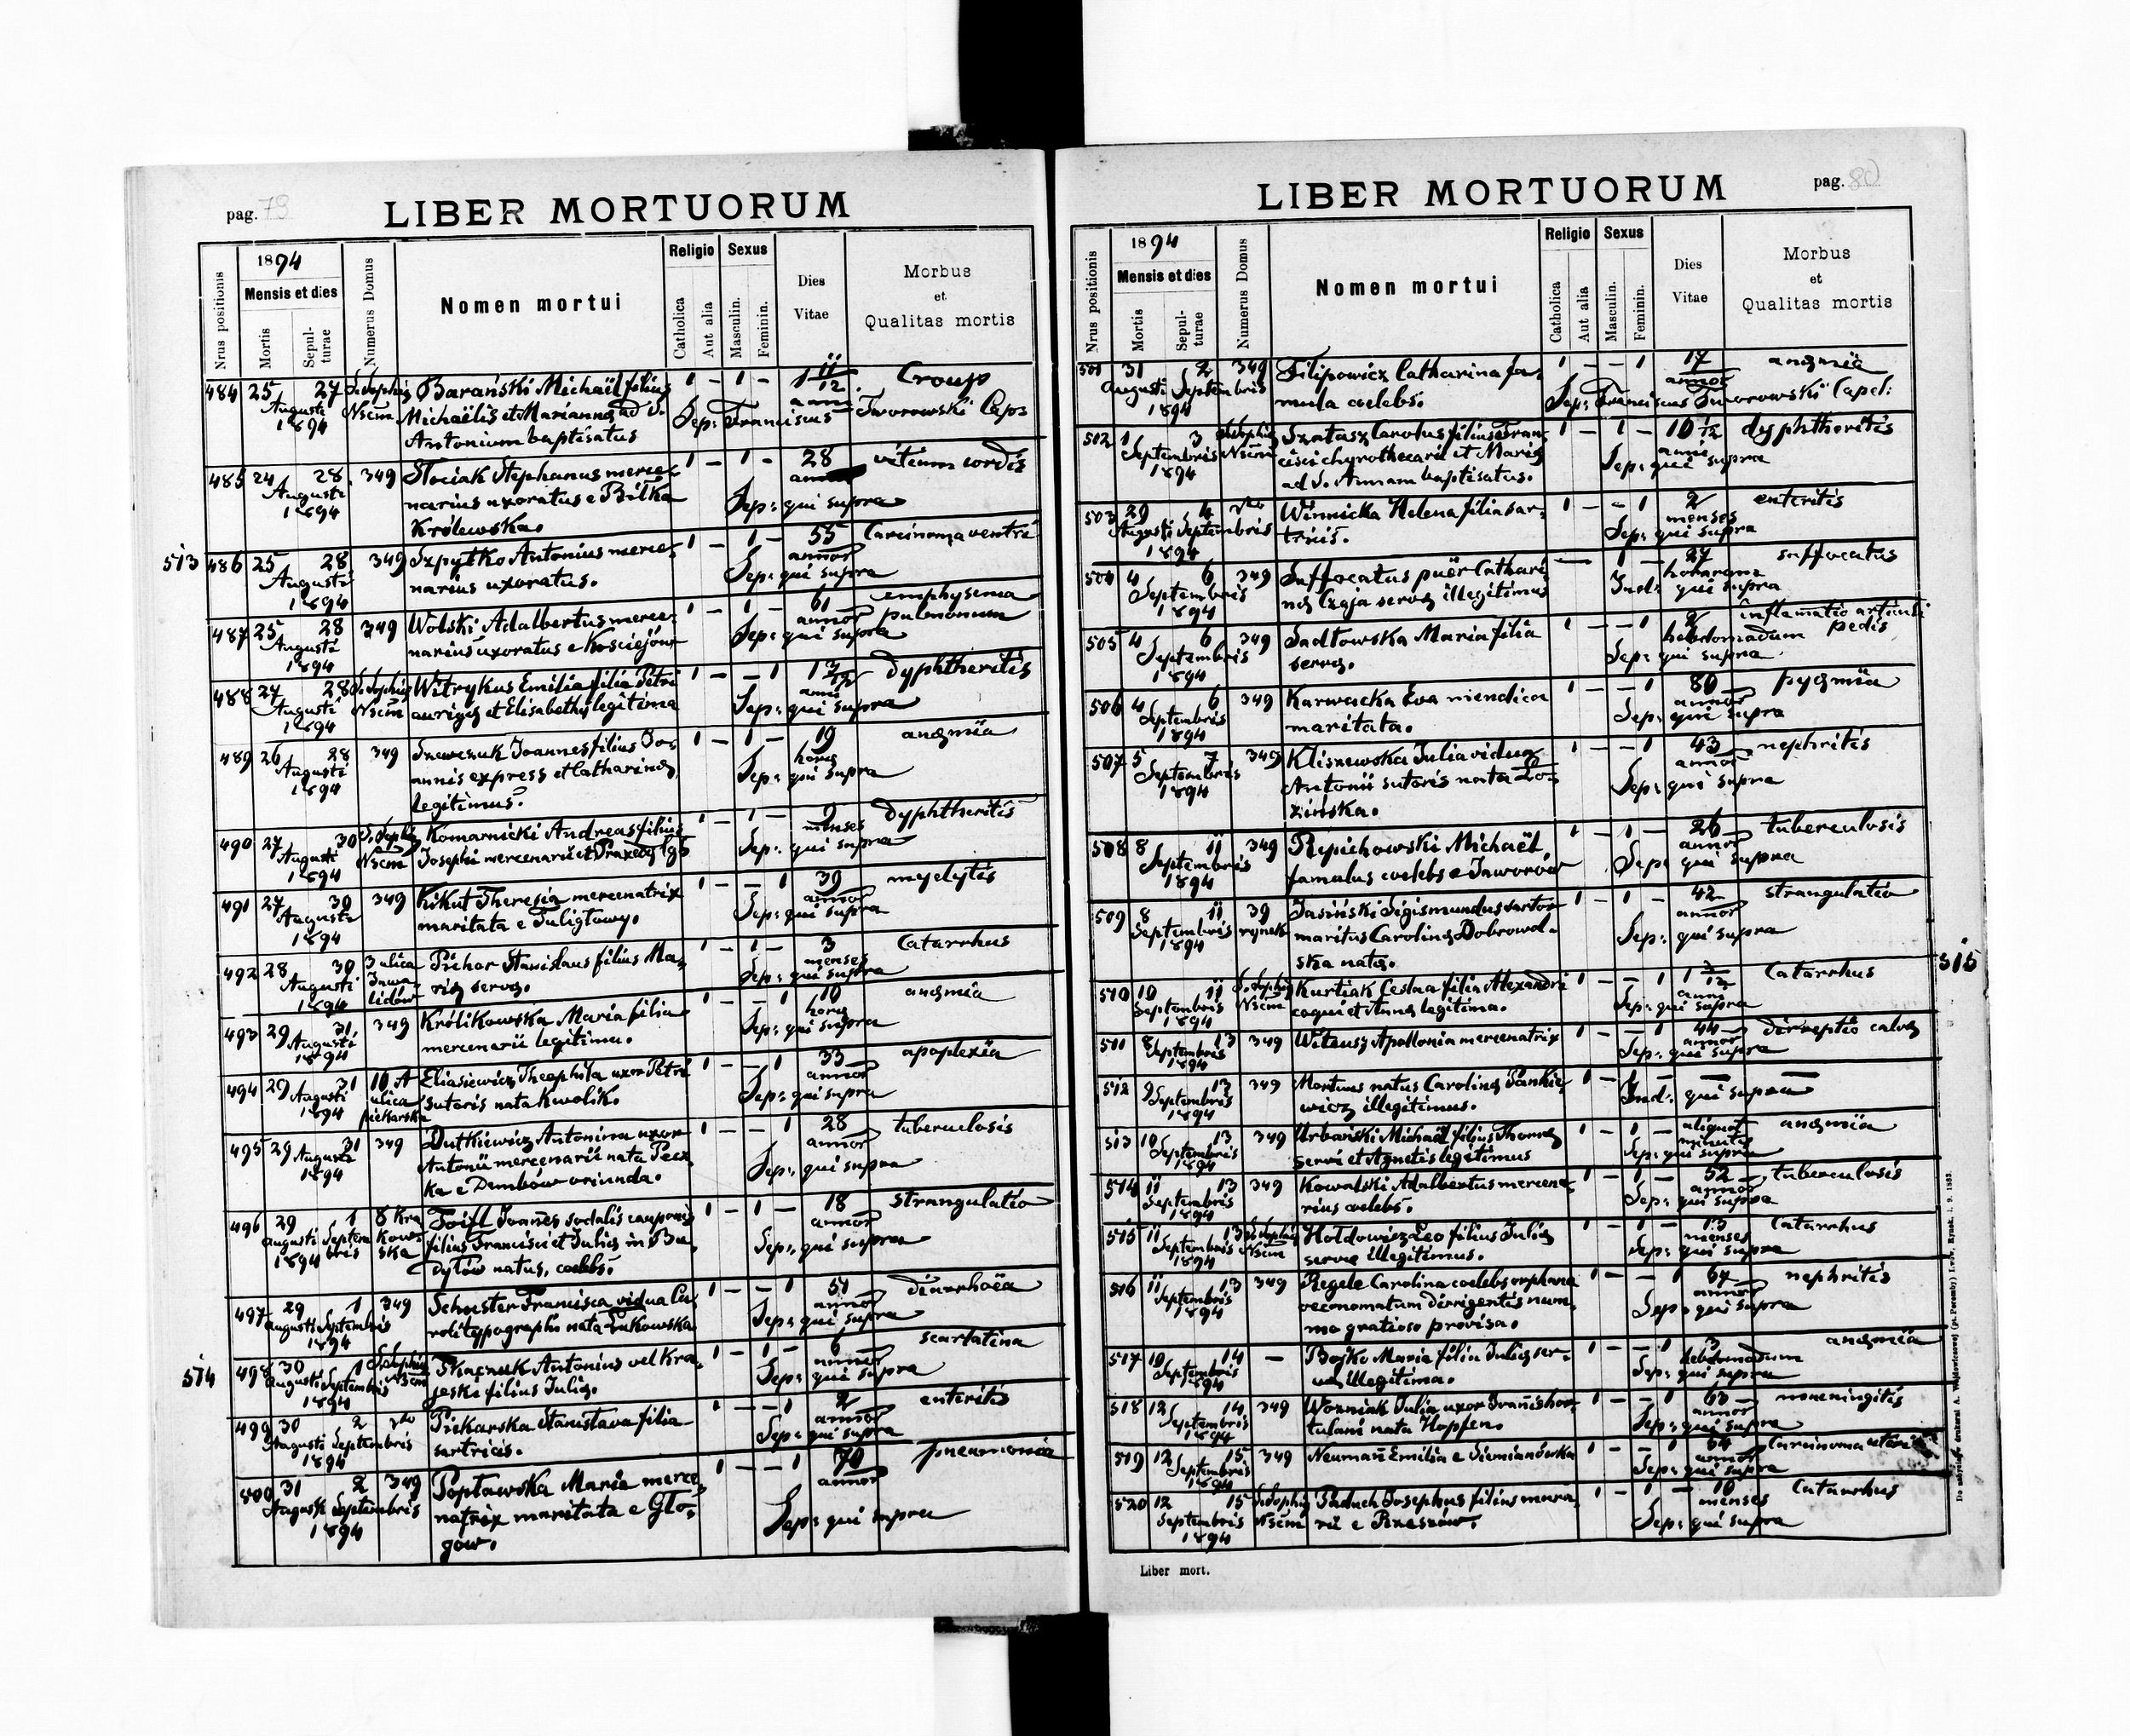 pag. 79
LIBER MORTUORUM
Nrus positionis
1894
Mensis et dies
Mortis
Sepulturae
Numerus Domus
Nomen mortui
Religio
Catholica
Aut alia
Sexus
Masculin.
Feminin.
Dies
Vitae
Morbus
et
Qualitas mortis
484 25 27 S. Sophiæ Barański Michaël filius 1 – 1 – 1 11/12 Croup
Augusti Nscm Michaëlis et Mariannæ ad S. anni
1894 Antonium baptisatus Sep: Franciscus Tworowski Cap:
485 24 28 349 Stociak Stephanus merce- 1 – 1 – 28 vitium cordis
Augusti narius uxoratus e Biłka
1894 Królewska. Sep: qui supra
513 486 25 28 349 Szpytko Antonius merce- 1 – 1 – 55 Carcinoma ventri
Augusti narius uxoratus. annor
1894 Sep: qui supra
487 25 28 349 Wolski Adalbertus merce- 1 – 1 – 61 emphysema
Augusti narius uxoratus e Kościejów annor pulmonum
1894 Sep: qui supra
488 27 28 S. Sophiæ Witrykus Emilia filia Petri 1 – – 1 dyphtheritis
Augusti Nscm aurigæ et Elisabethæ legitima anni
1894 Sep: qui supra
489 26 28 349 Szewczuk Joannes filius Jo- 1 – 1 – 19 anæmia
Augusti annis express et Catharinæ horæ
1894 legitimus. Sep: qui supra
490 27 30 S. Sophiæ Komarnicki Andreas filius 1 – 1 – 9 dyphtheritis
Augusti Nscm Josephi mercenarii et Praxedæ lgs menses
1894 Sep: qui supra
491 27 30 349 Kikut Theresia mercenatrix 1 – – 1 39 myelytis
Augusti maritata e Tuligłowy. annor
1894 Sep: qui supra
492 28 30 3 ulica Pichor Stanislaus filius Ma- 1 – 1 – 3 Catarrhus
Augusti Inwa- riæ servæ. menses
1894 lidów Sep: qui supra
493 29 31 349 Królikowska Maria filia 1 – – 1 10 anæmia
Augusti mercenarii legitima. horæ
1894 Sep: qui supra
494 29 31 10 A Eliasiewicz Theophila uxor Petri 1 – – 1 33 apoplexia
Augusti ulica sutoris nata Kwolik. annor
1894 Piekarska Sep: qui supra
495 29 31 349 Dutkiewicz Antonina uxor 1 – – 1 28 tuberculosis
Augusti Antonii mercenarii nata annor
1894 ka e Dembów oriunda. Sep: qui supra
496 29 1 8 Kra- Toifl Joannes sodalis cauponis 1 – 1 – 18 strangulatio
Augusti Septem- kow- filius Francisci et Juliæ in Bu- annor
1894 bris ska dyłów natus, coelebs. Sep: qui supra
497 29 1 349 Schuster Francisca vidua Ca- 1 – – 1 51 diarrhoëa
Augusti Septembris roli typographi nata Łukowska annor
1894 Sep: qui supra
514 498 30 1 S. Sophiæ Tkaczuk Antonius vel Kra- 1 – 1 – 6 scarlatina
Augusti Septembris Nscm jeski filius Juliæ. annor
1894 Sep: qui supra
499 30 2 Piekarska Stanisława filia 1 – – 1 2 enteritis
Augusti Septembris sartricis. annor
1894 Sep: qui supra
500 31 2 349 Popławska Maria merce- 1 – – 1 70 pneumonia
Augusti Septembris natrix maritata e Gło- annor
1894 gow. Sep: qui supra
pag. 80
LIBER MORTUORUM
Nrus positionis
1894
Mensis et dies
Mortis
Sepulturae
Numerus Domus
Nomen mortui
Religio
Catholica
Aut alia
Sexus
Masculin.
Feminin.
Dies
Vitae
Morbus
et
Qualitas mortis
501 31 2 349 Filipowicz Catharina fa- 1 – – 1 17 anæmia
Augusti Septembris mula coelebs. annor
1894 Sep: Franciscus Tworowski Capel:
502 1 3 S. Sophiæ Szatasz Carolus filius Fran- 1 – 1 – 10/12 dyphtheritis
Septembris Nscm cisci chyrothecarii et Mariæ anni
1894 ad S. Annam baptisatus. Sep: qui supra
503 29 4 Winnicka Helena filia sar- 1 – – 1 2 enteritis
Augusti Septembris toris. menses
1894 Sep: qui supra
504 4 6 349 Suffocatus puër Cathari- – 1 – 27 suffocatus
Septembris næ Czaja servæ illegitimus horarum
1894 Ind: qui supra
505 4 6 349 Sadłowska Maria filia 1 – – 1 2 inflamatio articuli
Septembris servæ. hebdomadum pedis
1894 Sep: qui supra
506 4 6 349 Karwacka Eva mendica 1 – – 1 80 pyæmia
Septembris maritata. annor
1894 Sep: qui supra
507 5 7 349 Kliszewska Julia vidua 1 – – 1 43 nephritis
Septembris Antonii sutoris nata Ło- annor
1894 zińska. Sep: qui supra
508 8 11 349 Rypichowski Michaël 1 – 1 – 26 tuberculosis
Septembris famulus coelebs e Jaworów annor
1894 Sep: qui supra
509 8 11 39 Jasiński Sigismundus sartor 1 – 1 – 42 strangulatio
Septembris rynek maritus Carolinæ Dobrowol- annor
1894 ska natæ. Sep: qui supra
515
510 10 11 S. Sophiæ Kurtiak Cesłaa filia Alexandri 1 – – 1 1 3/12 Catarrhus
Septembris Nscm coqui et Annæ legitima. anni
1894 Sep: qui supra
511 8 13 349 Witeusz Apollonia mercenatrix 1 – – 1 44 dirreptio calvæ
Septembris annor
1894 Sep: qui supra
512 9 13 349 Mortuus natus Carolinæ Pankie- 1 – 1 – –
Septembris wicz illegitimus.
1894 Ind: qui supra
513 10 13 349 Urbański Michaël filius Thomæ 1 – 1 – aliquot anæmia
Septembris servi et Agnetis legitimus minutæ
1894 Sep: qui supra
514 11 13 349 Kowalski Adalbertus mercena- 1 – 1 – 52 tuberculosis
Septembris rius coelebs. annor
1894 Sep: qui supra
515 11 13 S. Sophiæ Hołdowicz Leo filius Juliæ 1 – 1 – 13 Catarrhus
Septembris Nscm servæ illegitimus. menses
1894 Sep: qui supra
516 11 13 349 Regele Carolina coelebs orphana 1 – – 1 67 nephritis
Septembris oeconomatum dirrigentis num- annor
1894 mo gratioso provisa. Sep: qui supra
517 10 14 – Bojko Maria filia Juliæ ser- 1 – – 1 3 anæmia
Septembris væ illegitima. hebdomadum
1894 Sep: qui supra
518 12 14 349 Wozniak Julia uxor Joannis hor- 1 – – 1 63 menemingitis
Septembris tulani nata Hopfen. annor
1894 Sep: qui supra
519 12 15 349 Neumann Emilia e Siemianówka 1 – – 1 54 Carcinoma uteri
Septembris annor
1894 Sep: qui supra
520 12 15 S. Sophiæ Paduch Josephus filius mura- 1 – 1 – 10 Catarrhus
Septembris Nscm rii e Rzeszów. menses
1894 Sep: qui supra
Liber mort.